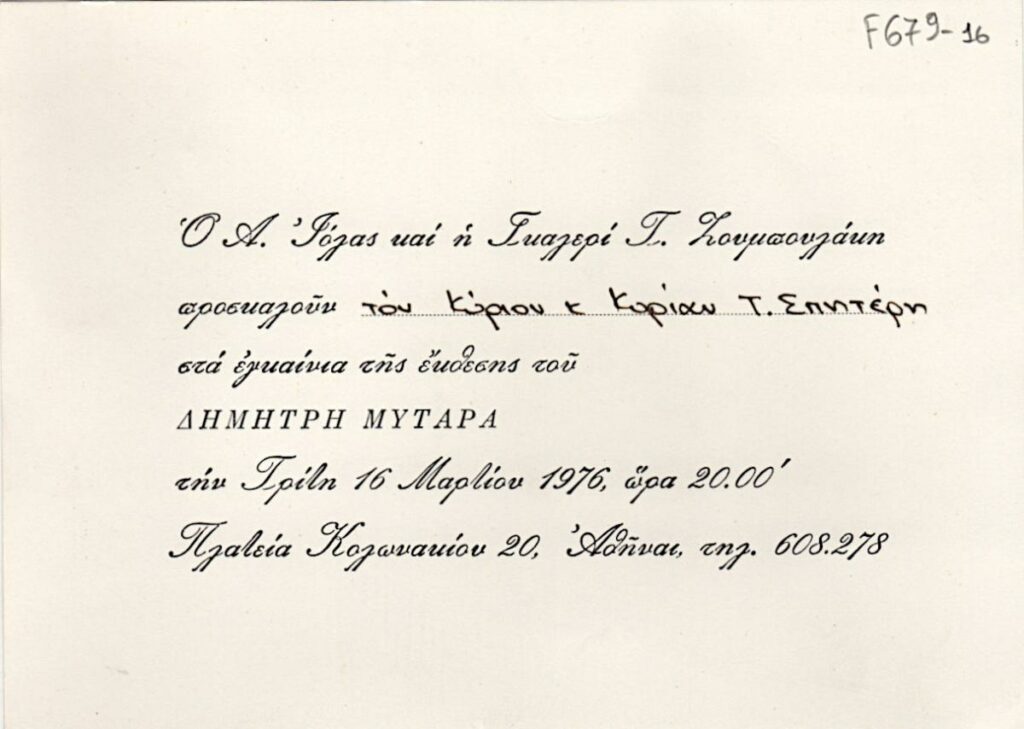 F679-16
Ὁ Α. Ἰόλας καί ἡ Γκαλερί Τ. Ζουμπουλάκη
προσκαλοῦν τόν Κύριον κ Κυρίαν Τ. Σπητέρη
στά ἐγκαίνια τῆς ἔκθεσης τοῦ
ΔΗΜΗΤΡΗ ΜΥΤΑΡΑ
τήν Τρίτη 16 Μαρτίου 1976, ὥρα 20.00΄
Πλατεία Κολωνακίου 20, Ἀθῆναι, τηλ. 608.278